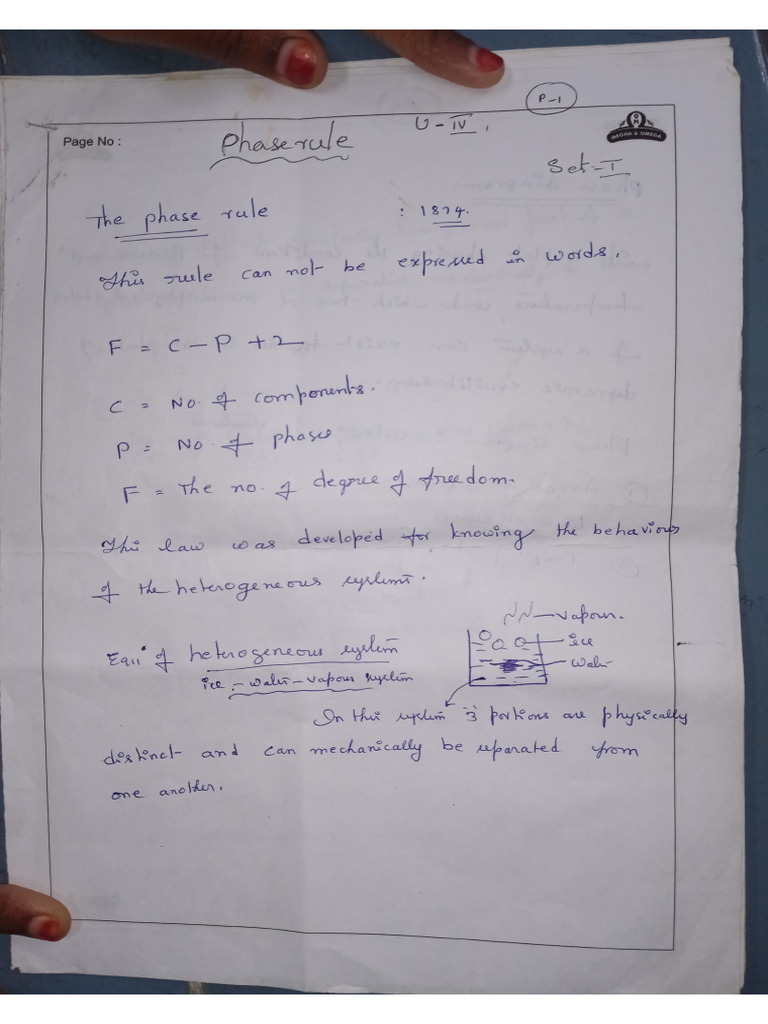 P-1
U-IV.
Page No :
Phase rule
MEGHA & OMEGA
Set-I
The phase rule : 1874.
This rule can not be expressed in words.
F = C - P + 2
C = No. of components.
P = No. of phases
F = The no. of degree of freedom.
This law was developed for knowing the behaviour
of the heterogeneous systems.
of heterogeneous system
ice - water - vapour system
vapour.
ice
water
In this system '3' portions are physically
distinct and can mechanically be separated from
one another.